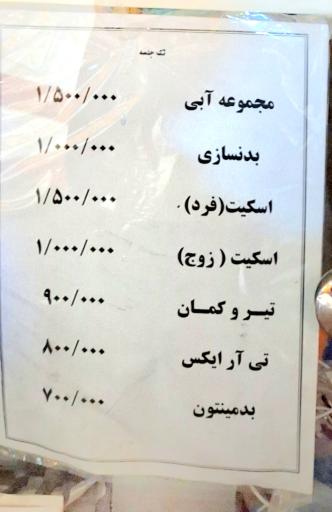 تک جلسه
مجموعه آبی ۱/۵۰۰/۰۰۰
بدنسازی ۱/۰۰۰/۰۰۰
اسکیت(فرد). ۱/۵۰۰/۰۰۰
اسکیت ( زوج) ۱/۰۰۰/۰۰۰
تیر و کمان ۹۰۰/۰۰۰
تی آر ایکس ۸۰۰/۰۰۰
بدمینتون ۷۰۰/۰۰۰